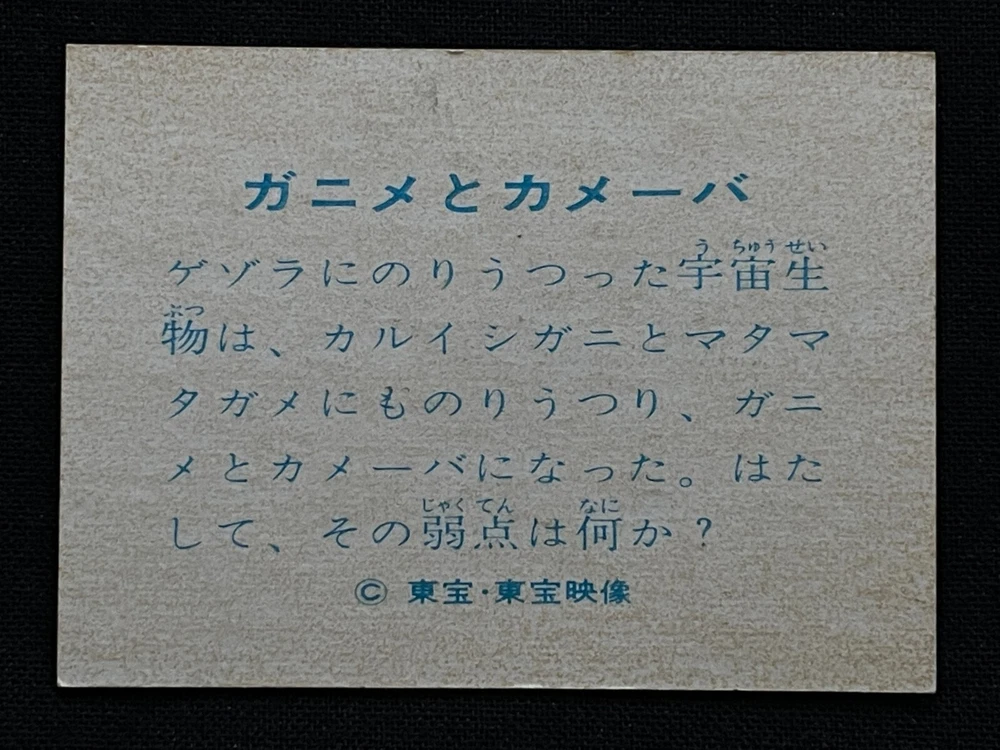 ガニメとカメーバ
ゲゾラにのりうつった宇宙生
物は、カルイシガニとマタマ
タガメにものりうつり、ガニ
メとカメーバになった。はた
して、その弱点は何か？
© 東宝・東宝映像